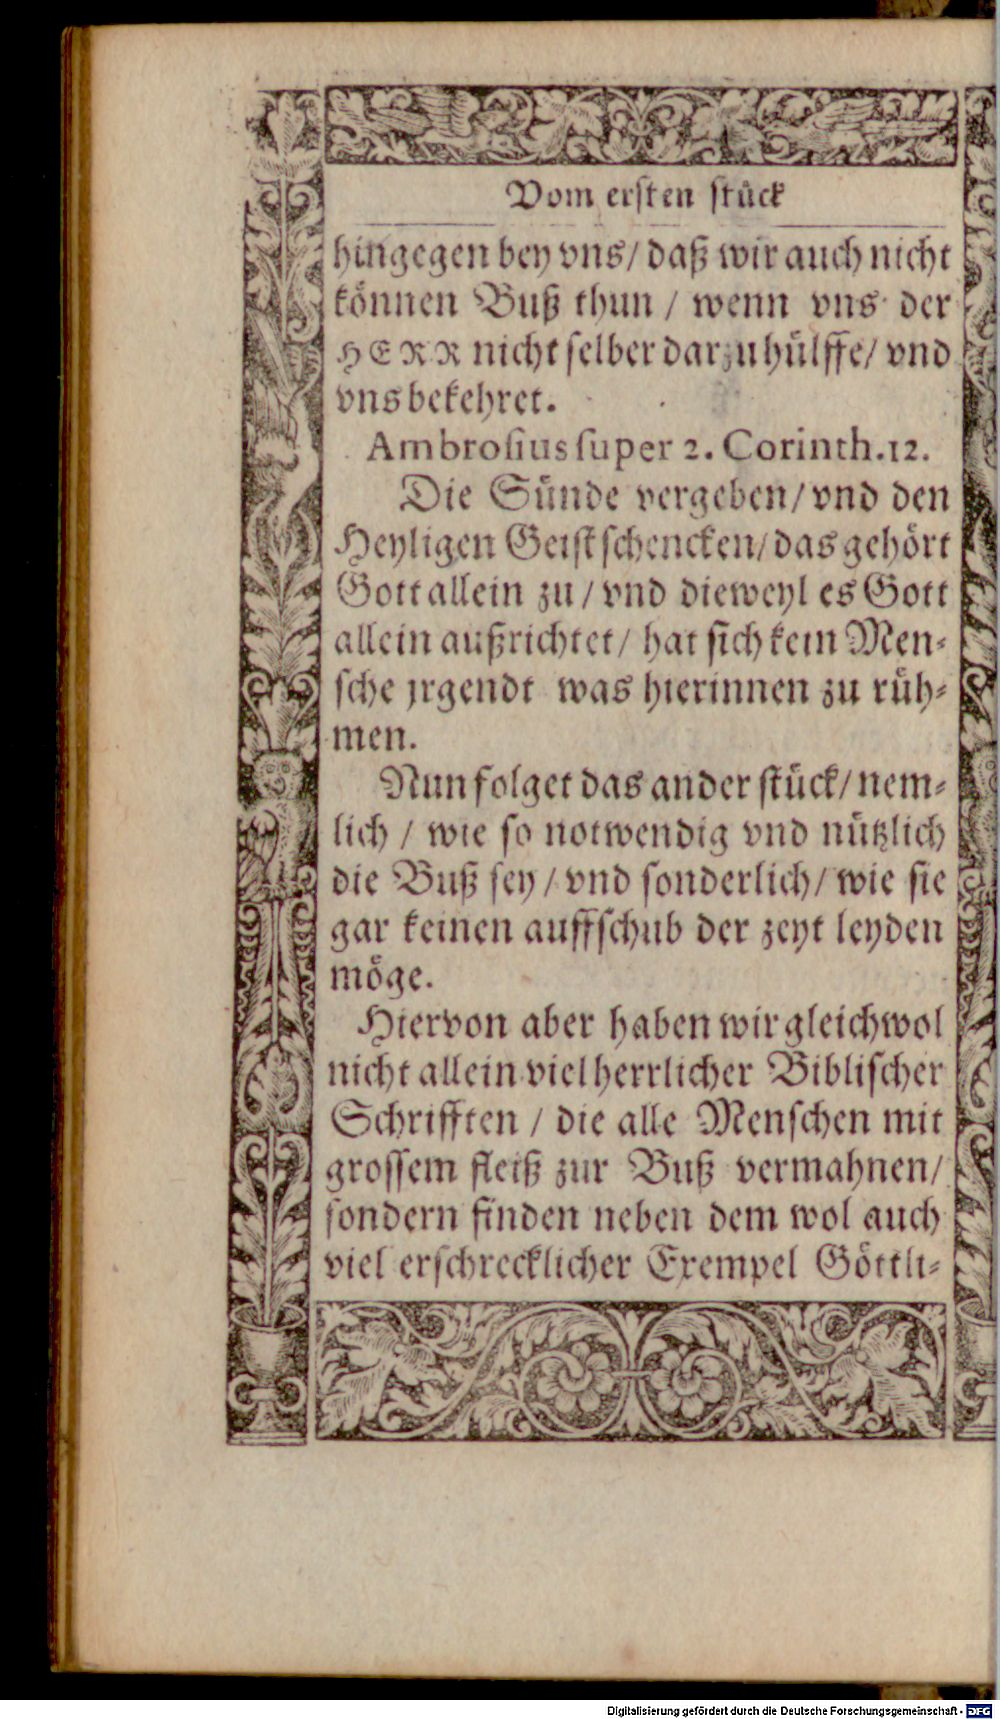 Vom ersten stück
hingegen bey vns/ daß wir auch nicht
können Buß thun / wenn vns der
HERR nicht selber darzu hülffe/ vnd
vns bekehret.
Ambrosius super 2. Corinth. 12.
Die Sünde vergeben/ vnd den
Heyligen Geist schencken/ das gehört
Gott allein zu / vnd dieweyl es Gott
allein außrichtet/ hat sich kein Men⸗
sche jrgendt was hierinnen zu rüh⸗
men.
Nun folget das ander stück/ nem⸗
lich / wie so notwendig vnd nützlich
die Buß sey / vnd sonderlich/ wie sie
gar keinen auffschub der zeyt leyden
möge.
Hiervon aber haben wir gleichwol
nicht allein viel herrlicher Biblischer
Schrifften / die alle Menschen mit
grossem fleiß zur Buß vermahnen/
sondern finden neben dem wol auch
viel erschrecklicher Exempel Göttli⸗
Digitalisierung gefördert durch die Deutsche Forschungsgemeinschaft - DFG